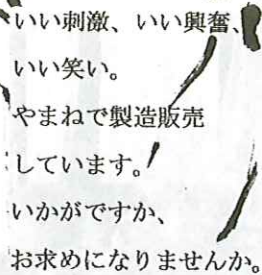 いい刺激、いい興奮、
いい笑い。
やまねで製造販売
しています。
いかがですか、
お求めになりませんか。